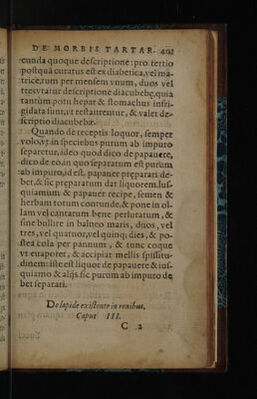 DE MORBIS TARTAR. 401
cunda quoque descriptione: pro tertio
postquā curatus est ex diabetica, vel ma-
trice, tum per mensem vnum, duos vel
tres vtatur descriptione diacubebę, quia
tantùm potu hepar & stomachus infri-
gidata sunt, vt restaurentur, & valet de-
scriptio diacubebæ.
Quando de receptis loquor, semper
volo, vt in speciebus purum ab impuro
separetur, ideo quod dico de papauere,
dico de eo, in quo separatum est purum
ab impuro, id est, papauer pręparari de-
bet, & sic pręparatum dat liquorem. Ius-
quiamum & papauer recipe, semen &
herbam totum contunde, & pone in ol-
lam vel cantarum bene perluratum, &
sine bullire in balneo maris, duos, vel
tres, vel quatuor, vel quinq; dies, & po-
stea cola per pannum, & tunc coque
vt euaporet, & accipiat mellis spissitu-
dinem: iste est liquor de papauere & ius-
quiamo & alijs. sic purum ab impuro de
bet separari.
De lapide existente in renibus.
Caput III.
C 2